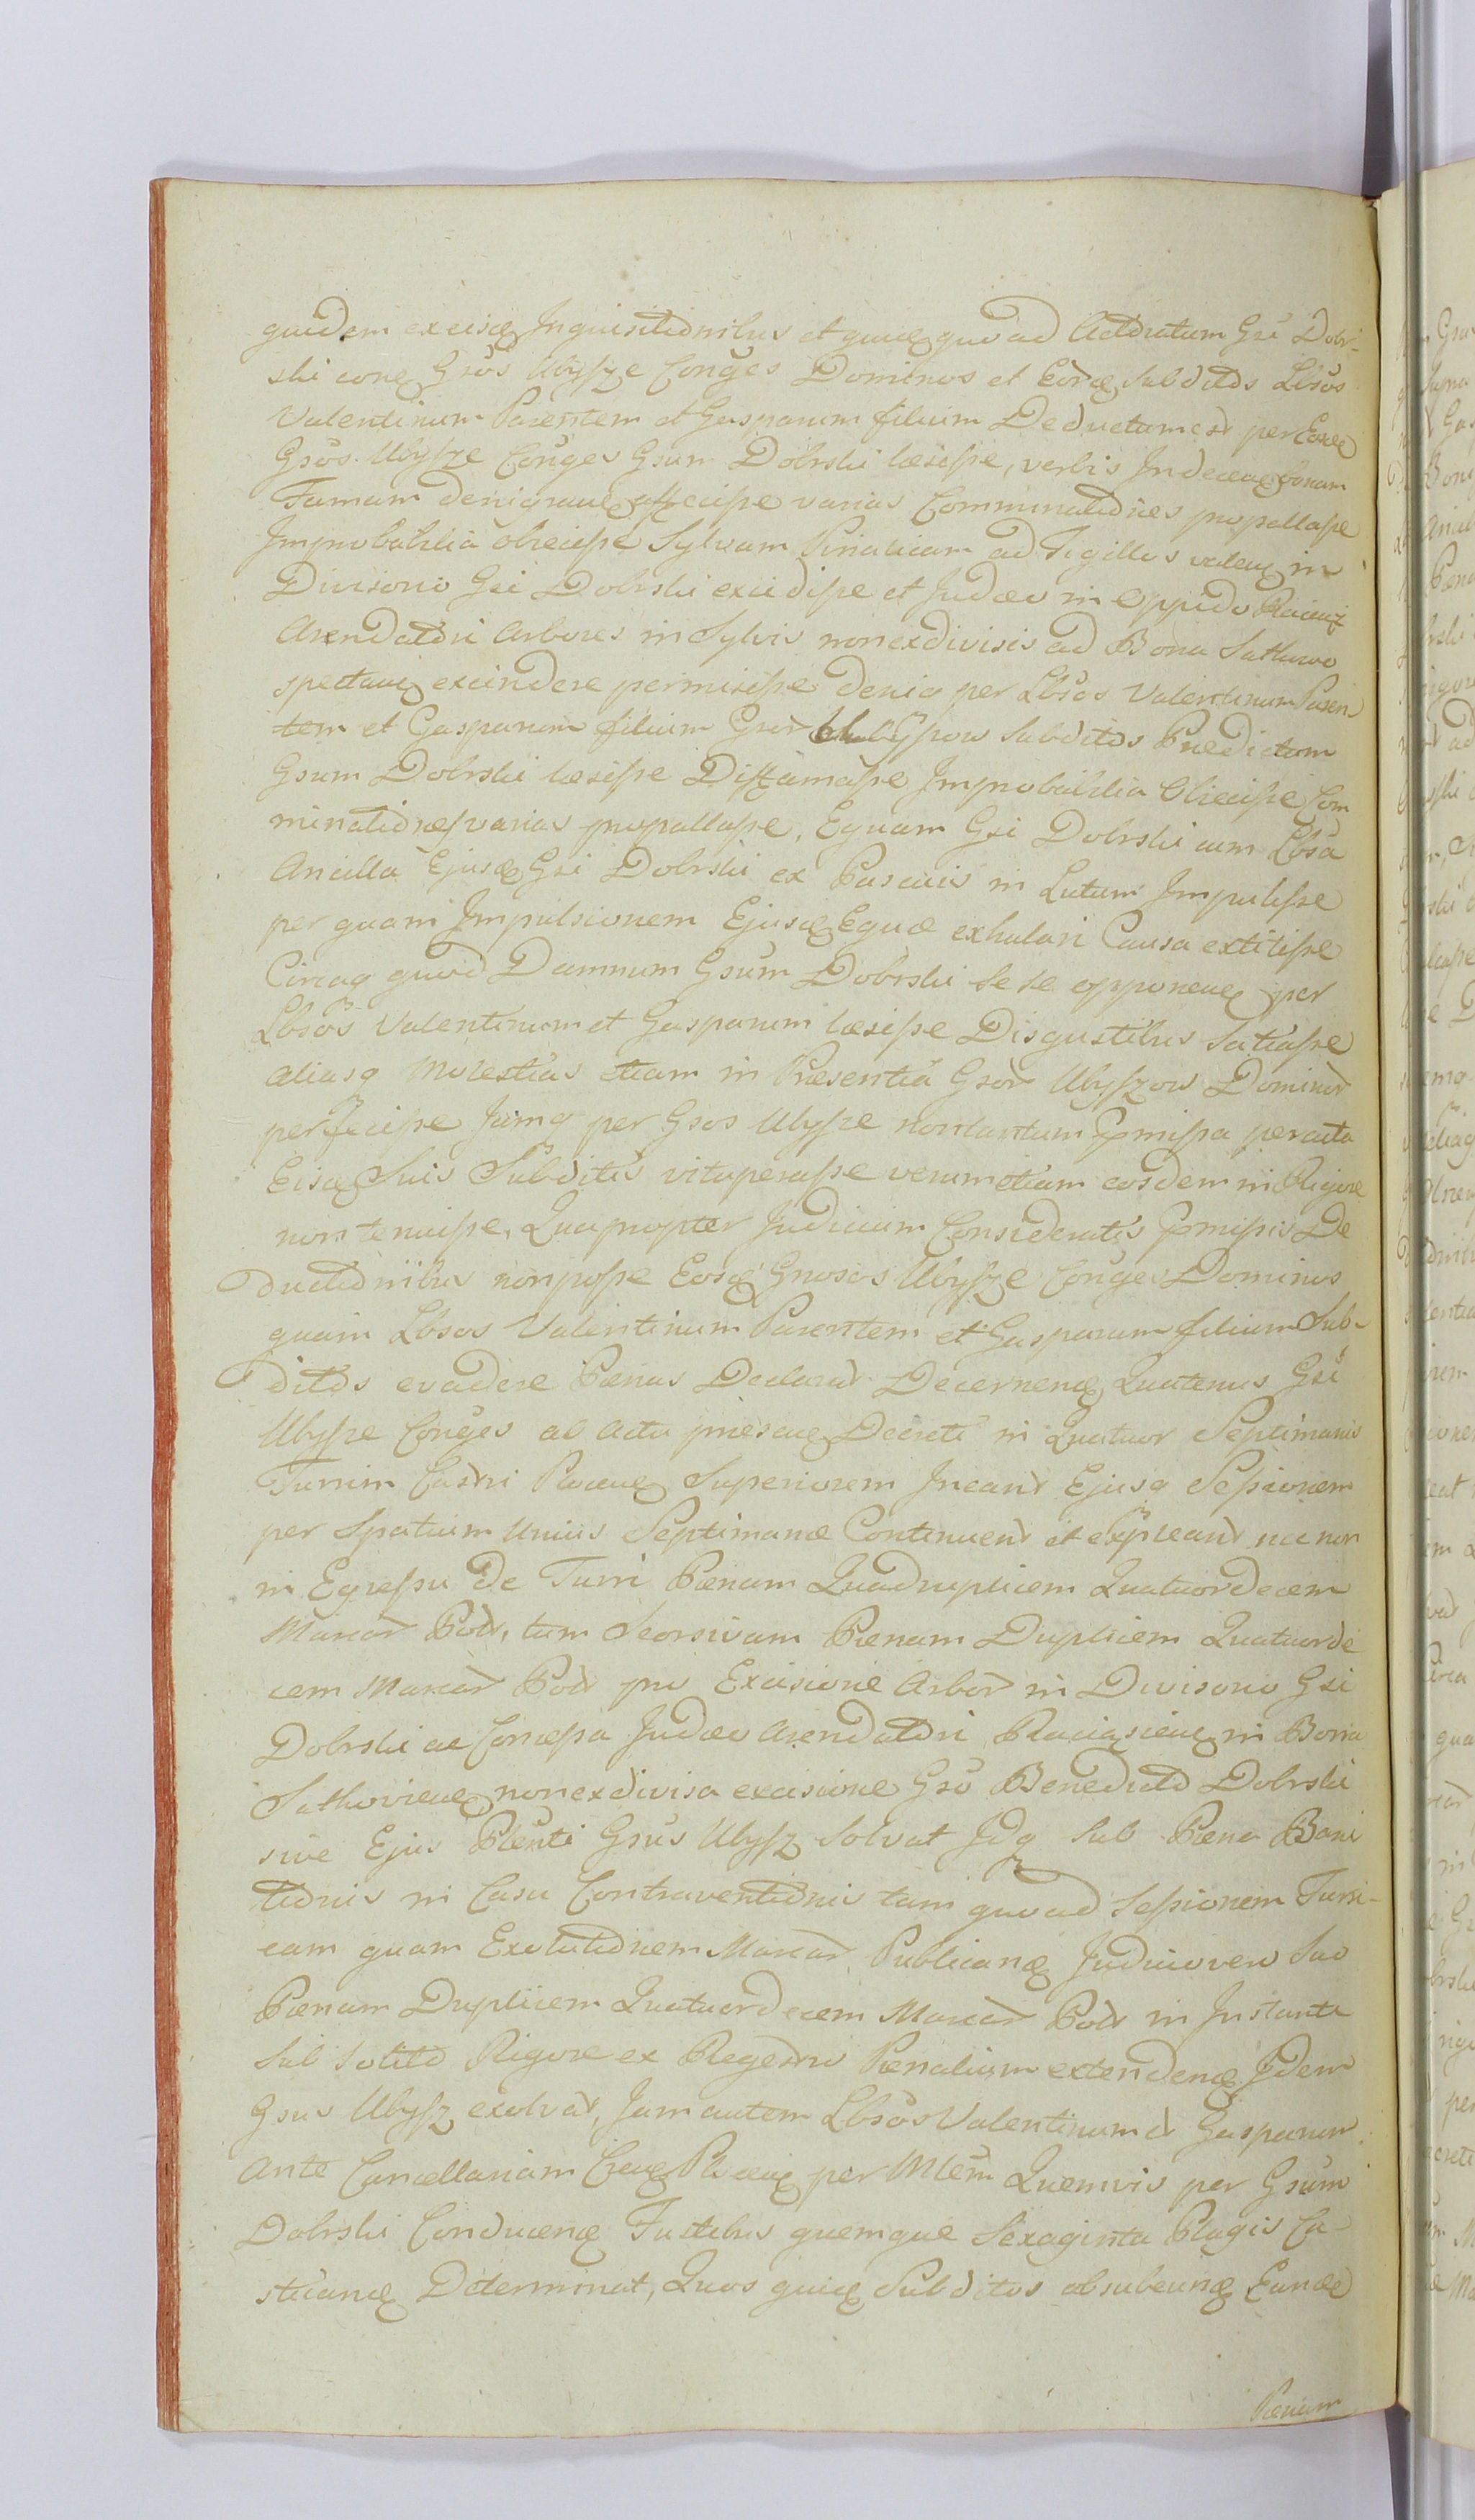 quidem exeisq Inquisitionibus et quiq quo ad Actoratum Gsi Dobr-
ski conq Gsos Ulysze Conges Dominos et Eorq Subditos Lbsos
Valentinum Parentem et Gasparum filium Deductum est per Eosq
Gsos Ulysze Conges Gsum Dobrski læsisse, verbis Indeceaq bonam
Famam denigraneq affecisse varias Comminationes propallasse
Improbabilia obiecisse Sylvam Piniaticam ad Tigillos valeaq in
Divisorio Gsi Dobrski excidisse et Judæo in Oppido Raciąż
Arendatori Arbores in Sylvis nonexdivisis ad Bona Sathowo
spectaneq excindere permisisse deniq per Lbsos Valentinum Paren
tem et Gasparum filium Gsor Ulyszow Subditos Prædictum
Gsum Dobrski læsisse Diffamasse Improbabilia Obiecisse Com
minationes varias propallasse, Equam Gsi Dobrski cum Lbsa
Ancilla Ejusq Gsi Dobrski ex Pascuis in Lutum Impulisse
per quam Impulsionem Ejusq Equæ exhalari Causa extitisse
Circaq quod Damnum Gsum Dobrski se se opponeneq per
Lbsos Valentinum et Gasparum læsisse Disgustibus Satiasse
aliasq Molestias etiam in Præsentia Gsor Ulyszow Dominor
perfecisse Jamq per Gsos Ulysze nontantum Præmissa peracta
Eisq Suis Subditis vituperasse verum etiam eosdem in Rigore
non tenuisse, Quapropter Judicium Consideratis Præmissis De
ductionibus non posse Eosq Gnosos Ulysze Conges Dominos
quam Lbsos Valentinum Parentem et Gasparum filium Sub-
ditos evadere Pænas Declarat Decernenq Quatenus Gsi
Ulysze Conges ab actu præseneq Decreti in Quatuor Septimanis
Turrim Castri Raceneq Superiorem Ineant Ejusq Sessionem
per Spatium Unius Septimanæ Continuent et expleant nec non
in Egressu de Turri Pænam Quadruplicem Quatuordecem
Marcar Polr, tum Seorsivam Pænam Duplicem Quatuorde
cem Marcar Polr pro Excisione Arbor in Divisorio Gsi
Dobrski ac Concessa Judæo Arendatori Raciąsieneq in Bona
Sathovieneq nonexdivisa excisione Gso Benedicto Dobrski
sive Ejus Plenti Gsus Ulysz Solvat Idq sub Pæna Bani
tionis in Casu Contraventionis tam quo ad Sessionem Turri-
cam quam Exolutionem Marcar Publicanq Judicio vero Suo
Pænam Duplicem Quatuordecem Marcar Polr in Instanti
Sub Solito Rigore ex Regestro Pænalium extendenq Idem
Gsus Ulysz exolvat, Jam autem Lbsos Valentinum et Gasparum
Ante Cancellariam Cieneq Raceneq per Mtēm Quemvis per Gsum
Dobrski Conducenq Fustibus quemque Sexaginta Plagis Ca-
stiganq Determinat, Quos quiq Subditos absubeunq Eanq
Pænam